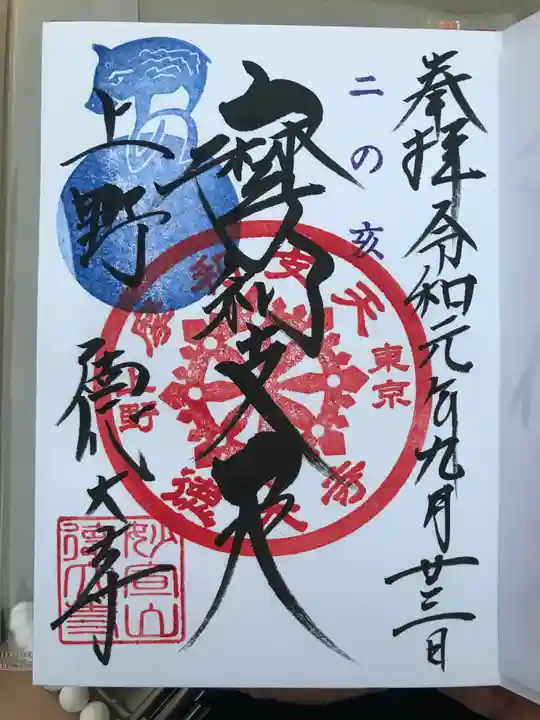 奉拝
令和元年九月廿三日
二の亥
摩利支天
上野
徳大寺
摩利支天
東京
上野
徳大寺
妙宣山
徳大寺